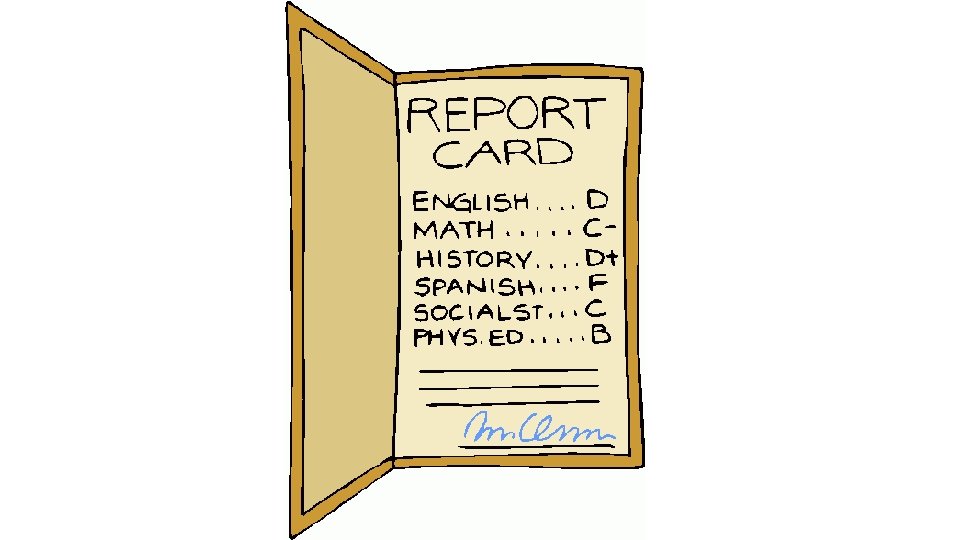 REPORT
CARD
ENGLISH.... D
MATH ..... C-
HISTORY.... D+
SPANISH.... F
SOCIALST... C
PHYS. ED ..... B